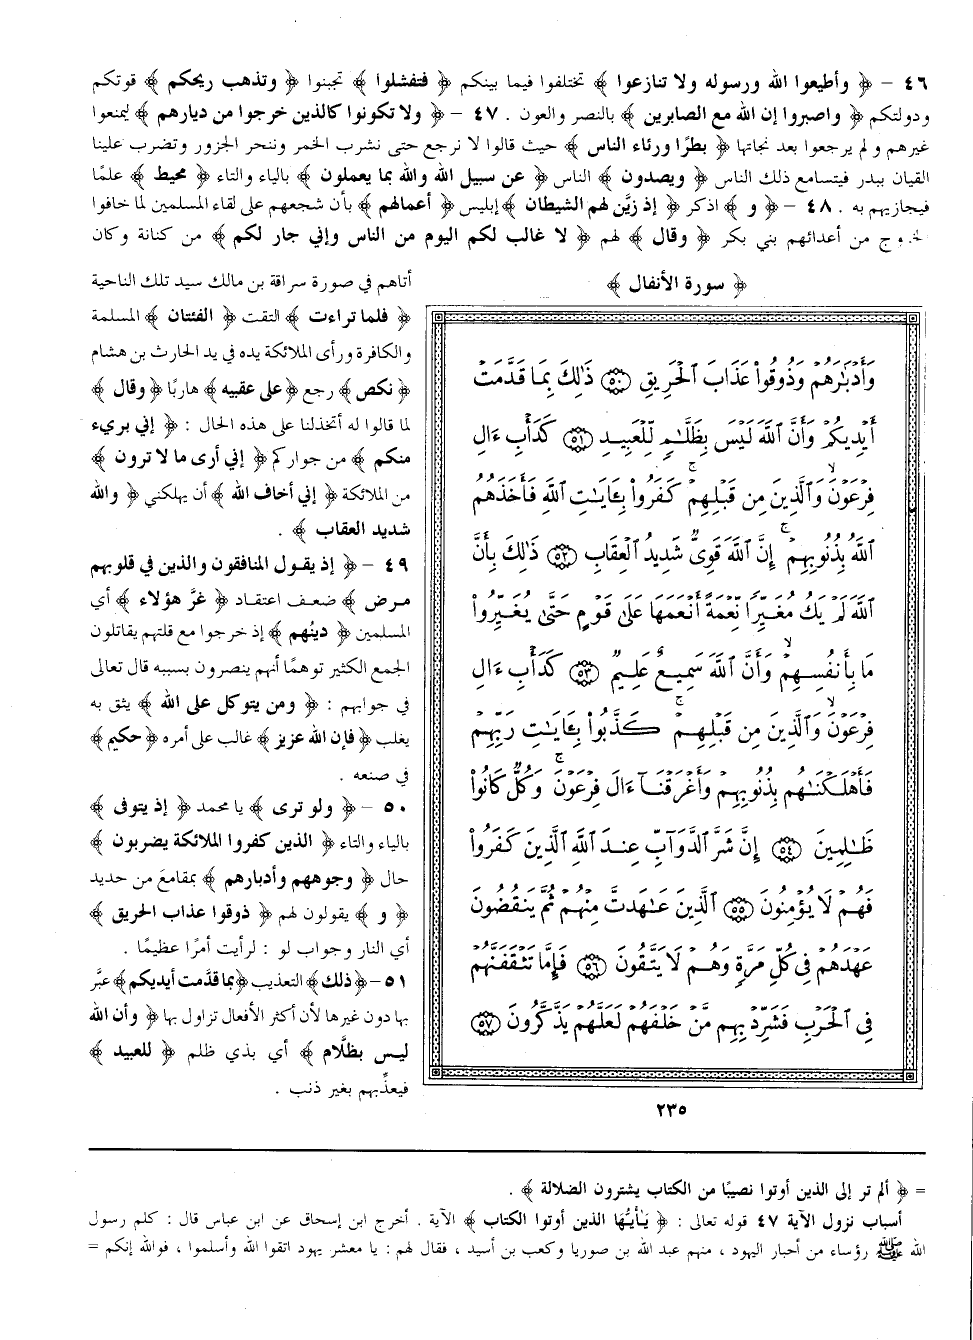 ٤٦ – ﴿ وأطيعوا الله ورسوله ولا تنازعوا ﴾ تختلفوا فيما بينكم ﴿ فتفشلوا ﴾ تجبنوا ﴿ وتذهب ريحكم ﴾ قوتكم
ودولتكم ﴿ واصبروا إن الله مع الصابرين ﴾ بالنصر والعون . ٤٧ – ﴿ ولا تكونوا كالذين خرجوا من ديارهم ﴾ ليمنعوا
غيرهم ولم يرجعوا بعد نجاتها ﴿ بطرًا ورئاء الناس ﴾ حيث قالوا لا نرجع حتى نشرب الخمر وننحر الجزور وتضرب علينا
القيان ببدر فيتسامع ذلك الناس ﴿ ويصدون ﴾ الناس ﴿ عن سبيل الله والله بما يعملون ﴾ بالياء والتاء ﴿ محيط ﴾ علمًا
فيجازيهم به . ٤٨ – ﴿ و ﴾ اذكر ﴿ إذ زيَّن لهم الشيطان ﴾ إبليس ﴿ أعمالهم ﴾ بأن شجعهم على لقاء المسلمين لما خافوا
الخروج من أعدائهم بني بكر ﴿ وقال ﴾ لهم ﴿ لا غالب لكم اليوم من الناس وإني جار لكم ﴾ من كنانة وكان
أتاهم في صورة سراقة بن مالك سيد تلك الناحية
﴿ فلما تراءت ﴾ التقت ﴿ الفئتان ﴾ المسلمة
والكافرة ورأى الملائكة يده في يد الحارث بن هشام
﴿ نكص ﴾ رجع ﴿ على عقبيه ﴾ هاربًا ﴿ وقال ﴾
لما قالوا له أتخذلنا على هذه الحال : ﴿ إني بريء
منكم ﴾ من جواركم ﴿ إني أرى ما لا ترون ﴾
من الملائكة ﴿ إني أخاف الله ﴾ أن يهلكني ﴿ والله
شديد العقاب ﴾ .
٤٩ – ﴿ إذ يقول المنافقون والذين في قلوبهم
مرض ﴾ ضعف اعتقاد ﴿ غرَّ هؤلاء ﴾ أي
المسلمين ﴿ دينُهم ﴾ إذ خرجوا مع قلتهم يقاتلون
الجمع الكثير توهمًا أنهم ينصرون بسببه قال تعالى
في جوابهم : ﴿ ومن يتوكل على الله ﴾ يثق به
يغلب ﴿ فإن الله عزيز ﴾ غالب على أمره ﴿ حكيم ﴾
في صنعه .
٥٠ – ﴿ ولو ترى ﴾ يا محمد ﴿ إذ يتوفى ﴾
بالياء والتاء ﴿ الذين كفروا الملائكة يضربون ﴾
حال ﴿ وجوههم وأدبارهم ﴾ بمقامع من حديد
﴿ و ﴾ يقولون لهم ﴿ ذوقوا عذاب الحريق ﴾
أي النار وجواب لو : لرأيت أمرًا عظيمًا .
٥١ – ﴿ ذلك ﴾ التعذيب ﴿ بما قدَّمت أيديكم ﴾ عبَّر
بها دون غيرها لأن أكثر الأفعال تزاول بها ﴿ وأن الله
ليس بظلَّام ﴾ أي بذي ظلم ﴿ للعبيد ﴾
فيعذِّبهم بغير ذنب .
﴿ سورة الأنفال ﴾
وَأَدْبَٰرَهُمْ وَذُوقُوا۟ عَذَابَ ٱلْحَرِيقِ ٥٠ ذَٰلِكَ بِمَا قَدَّمَتْ
أَيْدِيكُمْ وَأَنَّ ٱللَّهَ لَيْسَ بِظَلَّٰمٍ لِّلْعَبِيدِ ٥١ كَدَأْبِ ءَالِ
فِرْعَوْنَ ۙ وَٱلَّذِينَ مِن قَبْلِهِمْ ۚ كَفَرُوا۟ بِـَٔايَٰتِ ٱللَّهِ فَأَخَذَهُمُ
ٱللَّهُ بِذُنُوبِهِمْ ۚ إِنَّ ٱللَّهَ قَوِىٌّ شَدِيدُ ٱلْعِقَابِ ٥٢ ذَٰلِكَ بِأَنَّ
ٱللَّهَ لَمْ يَكُ مُغَيِّرًا نِّعْمَةً أَنْعَمَهَا عَلَىٰ قَوْمٍ حَتَّىٰ يُغَيِّرُوا۟
مَا بِأَنفُسِهِمْ ۙ وَأَنَّ ٱللَّهَ سَمِيعٌ عَلِيمٌ ٥٣ كَدَأْبِ ءَالِ
فِرْعَوْنَ ۙ وَٱلَّذِينَ مِن قَبْلِهِمْ ۚ كَذَّبُوا۟ بِـَٔايَٰتِ رَبِّهِمْ
فَأَهْلَكْنَٰهُم بِذُنُوبِهِمْ وَأَغْرَقْنَآ ءَالَ فِرْعَوْنَ ۚ وَكُلٌّ كَانُوا۟
ظَٰلِمِينَ ٥٤ إِنَّ شَرَّ ٱلدَّوَآبِّ عِندَ ٱللَّهِ ٱلَّذِينَ كَفَرُوا۟
فَهُمْ لَا يُؤْمِنُونَ ٥٥ ٱلَّذِينَ عَٰهَدتَّ مِنْهُمْ ثُمَّ يَنقُضُونَ
عَهْدَهُمْ فِى كُلِّ مَرَّةٍ وَهُمْ لَا يَتَّقُونَ ٥٦ فَإِمَّا تَثْقَفَنَّهُمْ
فِى ٱلْحَرْبِ فَشَرِّدْ بِهِم مَّنْ خَلْفَهُمْ لَعَلَّهُمْ يَذَّكَّرُونَ ٥٧
٢٣٥
= ﴿ ألم تر إلى الذين أوتوا نصيبًا من الكتاب يشترون الضلالة ﴾ .
أسباب نزول الآية ٤٧ قوله تعالى : ﴿ يَـٰأيـُّها الذين أوتوا الكتاب ﴾ الآية . أخرج ابن إسحاق عن ابن عباس قال : كلم رسول
الله ﷺ رؤساء من أحبار اليهود ، منهم عبد الله بن صوريا وكعب بن أسيد ، فقال لهم : يا معشر يهود اتقوا الله وأسلموا ، فوالله إنكم =